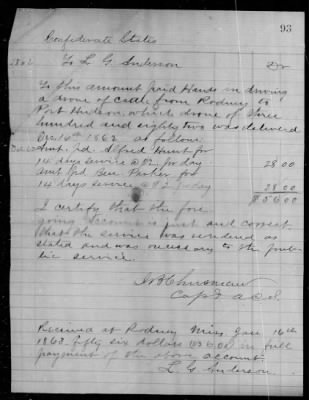 93
Confederate States
1862 To L G Anderson Dr
To this amount paid Hands in driving
a drove of cattle from Rodney to
Port Hudson, which drove of three
hundred and eighty two was delivered
Dec 16th 1862 as follows
Amt. pd. Alfred Hunt for
14 days service @ $2. per day 28.00
Amt pd Ben Parker for
14 days service @ $2 per day 28.00
$56.00
I certify that the fore
going account is just and correct
that the service was rendered as
stated and was necessary to the pub
lic service.
Capt A C S.
Received at Rodney Miss, Jany 16th
1863, fifty six dollars $56.00 in full
payment of the above account.
L. G. Anderson.